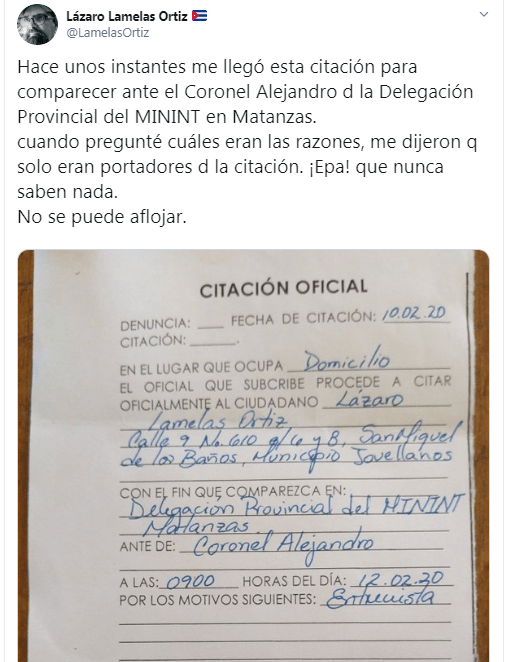 Lázaro Lamelas Ortiz
@LamelasOrtiz
Hace unos instantes me llegó esta citación para
comparecer ante el Coronel Alejandro d la Delegación
Provincial del MININT en Matanzas.
cuando pregunté cuáles eran las razones, me dijeron q
solo eran portadores d la citación. ¡Epa! que nunca
saben nada.
No se puede aflojar.
CITACIÓN OFICIAL
DENUNCIA: ___ FECHA DE CITACIÓN: 10.02.20
CITACIÓN: ______.
EN EL LUGAR QUE OCUPA Domicilio
EL OFICIAL QUE SUBCRIBE PROCEDE A CITAR
OFICIALMENTE AL CIUDADANO Lázaro
Lamelas Ortiz,
Calle 9 No. 610 e/ 6 y 8, San Miguel
de los Baños, Municipio Jovellanos
CON EL FIN QUE COMPAREZCA EN:
Delegación Provincial del MININT
Matanzas
ANTE DE: Coronel Alejandro
A LAS: 0900 HORAS DEL DÍA: 12.02.20
POR LOS MOTIVOS SIGUIENTES: Entrevista